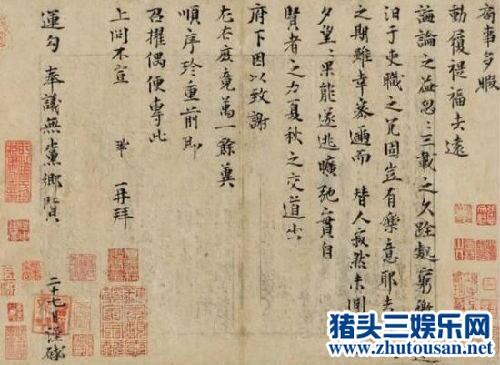 局事多暇
動履禔福去遠
誨論之益忽忽三載之久跧處窮徼
汩于吏職之冗固豈有樂意耶去
之期雖幸密邇而替人寂然未聞
夕望望果能遂逃曠弛實自
賢者之力夏秋之交道出
府下因以致謝
左右庶竟萬一餘冀
順序珍重前即
召擢偶便專此
上問不宣 鞏再拜
運勾奉議無黨鄉賢
二十七日謹啓
猪头三娱乐网
www.zhutousan.net